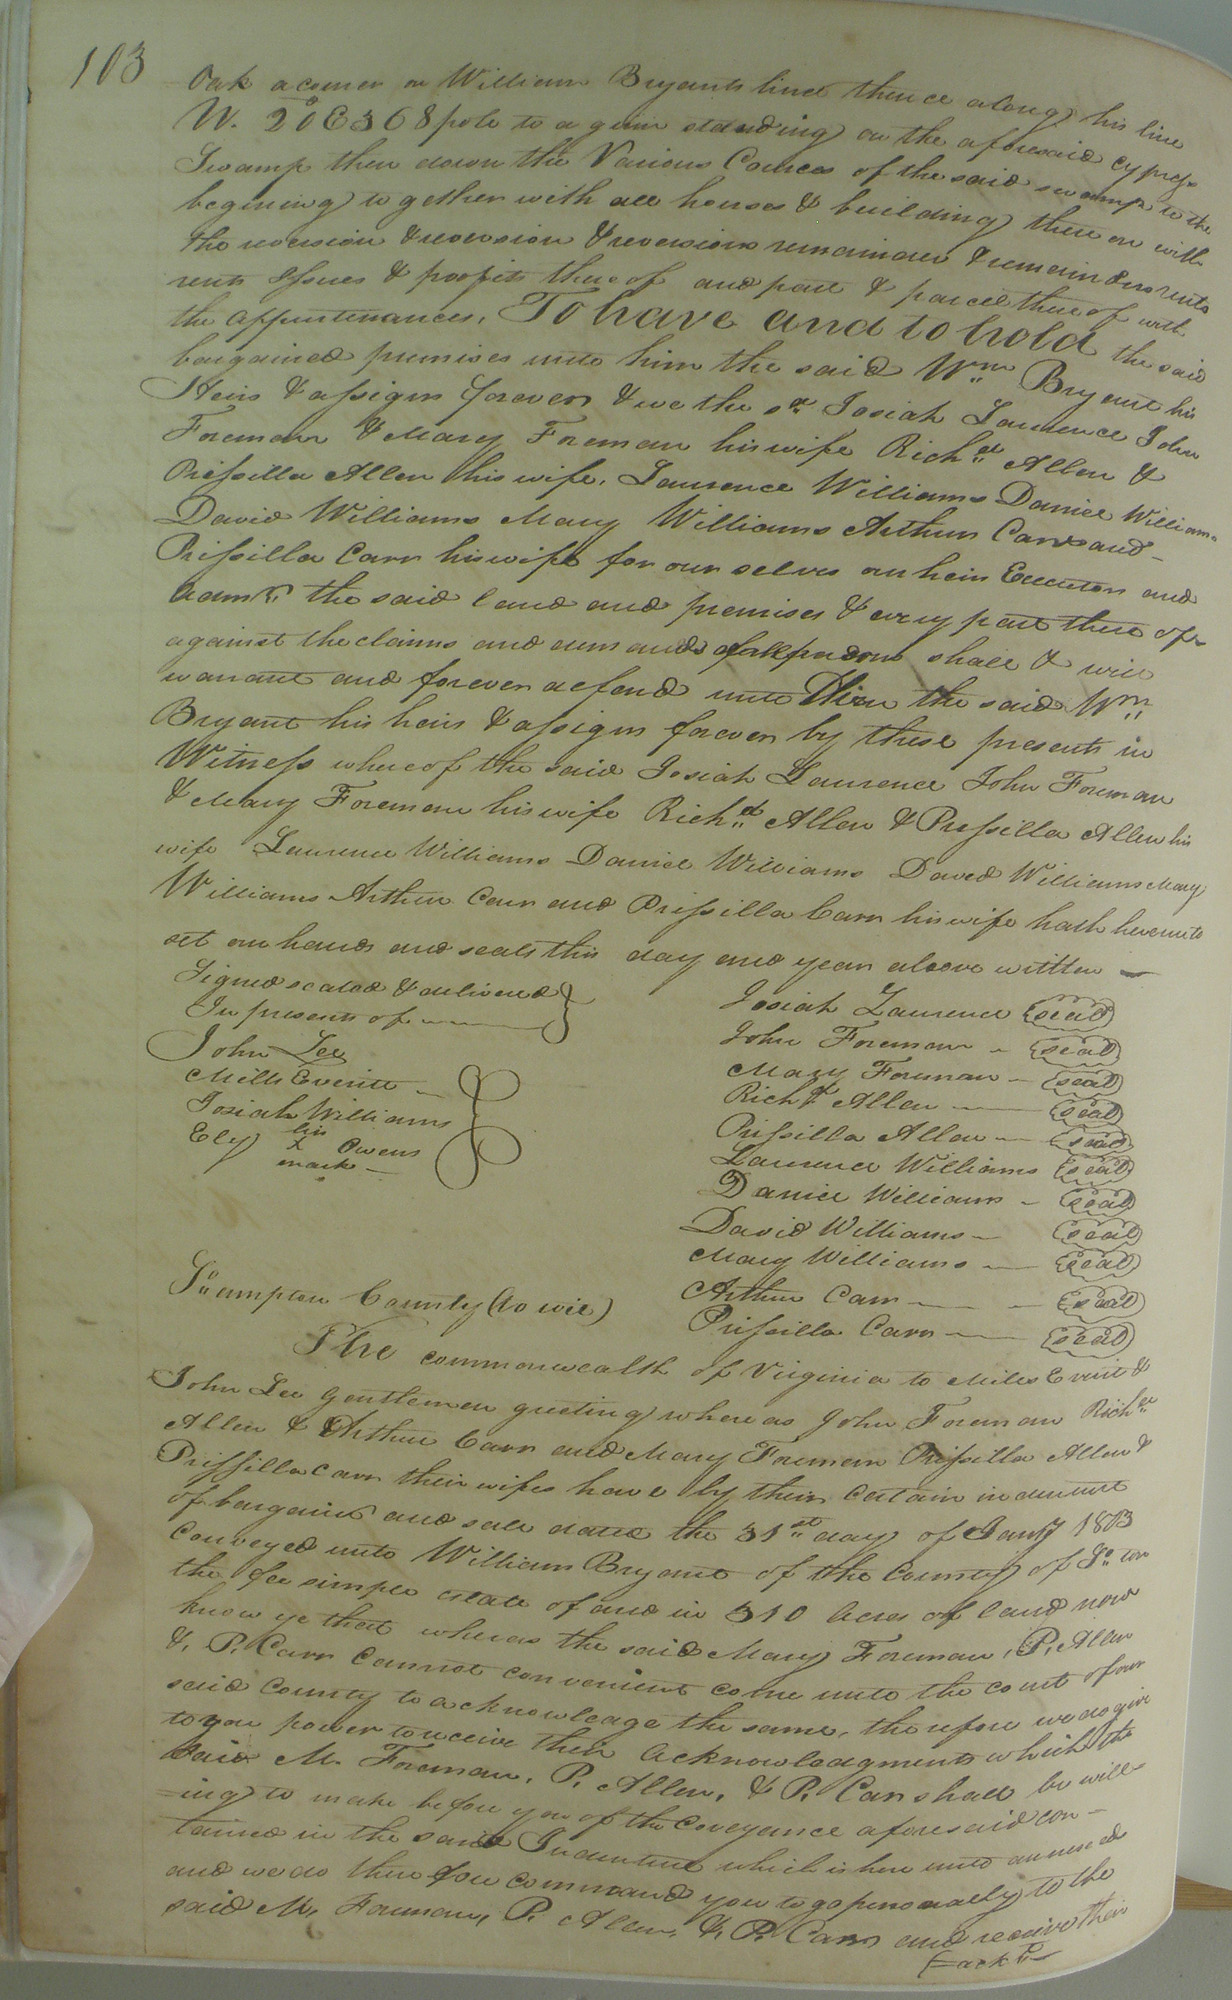 103
Oak a corner on William Bryants lined thence along his line
W. 20° E 368 pole to a gum standing on the aforesaid cypress
Swamp then down the Various Cources of the said swamp to the
begining together with all houses & building there on with
the reversion & reversion & reversions remainder & remainders rents
rents Issues & proofits thereof and part & parcel thereof with
the appurtenances, To have and to hold the said
bargained premises unto him the said Wm Bryant his
Heirs & assigns forever & we the sd Josiah Laurence John
Foreman & Mary Foreman his wife Richd Allen &
Prissilla Allen his wife, Laurence Williams Daniel Williams
David Williams Mary Williams Arthur Carr and
Prissilla Carr his wife for our selves our heirs Executors and
admrs the said land and premises & every part there of
against the claims and demands of all persons shall & will
warrant and forever defend unto Him the said Wm
Bryant his heirs & assigns forever by these presents in
Witness whereof the said Josiah Laurence John Foreman
& Mary Foreman his wife Richd Allen & Prissilla Allen his
wife Laurence Williams Daniel Williams David Williams Mary
Williams Arthur Carr and Prissilla Carr his wife hath hereunto
set our hands and seals this day and year above written
Signed sealed & delivered
In presents of
John Lee
Mills Everitt
Josiah Williams
Ely his x mark Owens
Josiah Laurence seal
John Foreman seal
Mary Foreman seal
Richd Allen seal
Prissilla Allen seal
Laurence Williams seal
Daniel Williams seal
David Williams seal
Mary Williams seal
Arthur Carr seal
Prissilla Carr seal
So ampton County (to wit)
The commonwealth of Virginia to Mills Everit &
John Lee Gentlemen greeting whereas John Foreman Richd
Allen & Arthur Carr and Mary Foreman Prissilla Allen &
Prissilla Carr their wifes have by their certain indenture
of bargain and sale dated the 31st day of Jany 1803
Conveyed unto William Bryant of the County of So ton
the fee simple estate of and in 310 Acres of land now
know ye that whereas the said Mary Foreman, P. Allen
&, P. Carr cannot convenient come unto the court of our
said County to acknowledge the same, therefore we do give
to you power to receive their Acknowledgments which the
said M. Foreman, P. Allen, & P. Carr shall be will-
=ing to make before you of the Coveyance aforesaid con-
tained in the said Indenture which is here unto annexed
and we do therefore command you to go personally to the
said M. Foreman, P. Allen, &, P. Carr and receive their